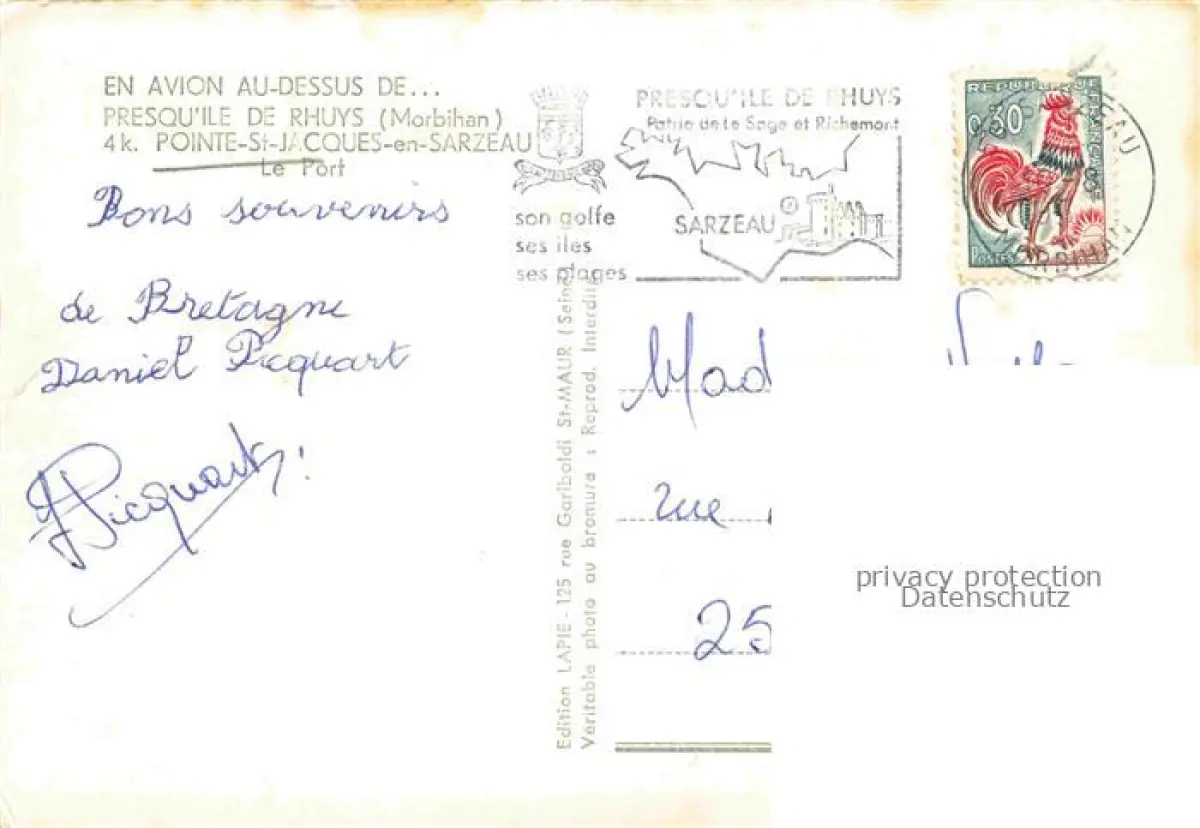 EN AVION AU-DESSUS DE...
PRESQU'ILE DE RHUYS (Morbihan)
4 k. POINTE-St-JACQUES-en-SARZEAU
Le Port
Bons souvenirs
de Bretagne
Daniel Picquart
Picquart
son golfe
ses iles
ses plages
PRESQU'ILE DE RHUYS
Patrie de Le Sage et Richemont
SARZEAU
REPUBLIQUE FRANÇAISE
0,30
POSTES
MORBIHAN
Edition LAPIE - 125 rue Garibaldi St-MAUR (Seine)
Véritable photo au bromure : Reprod. Interdite
Mad
rue
25
privacy protection
Datenschutz